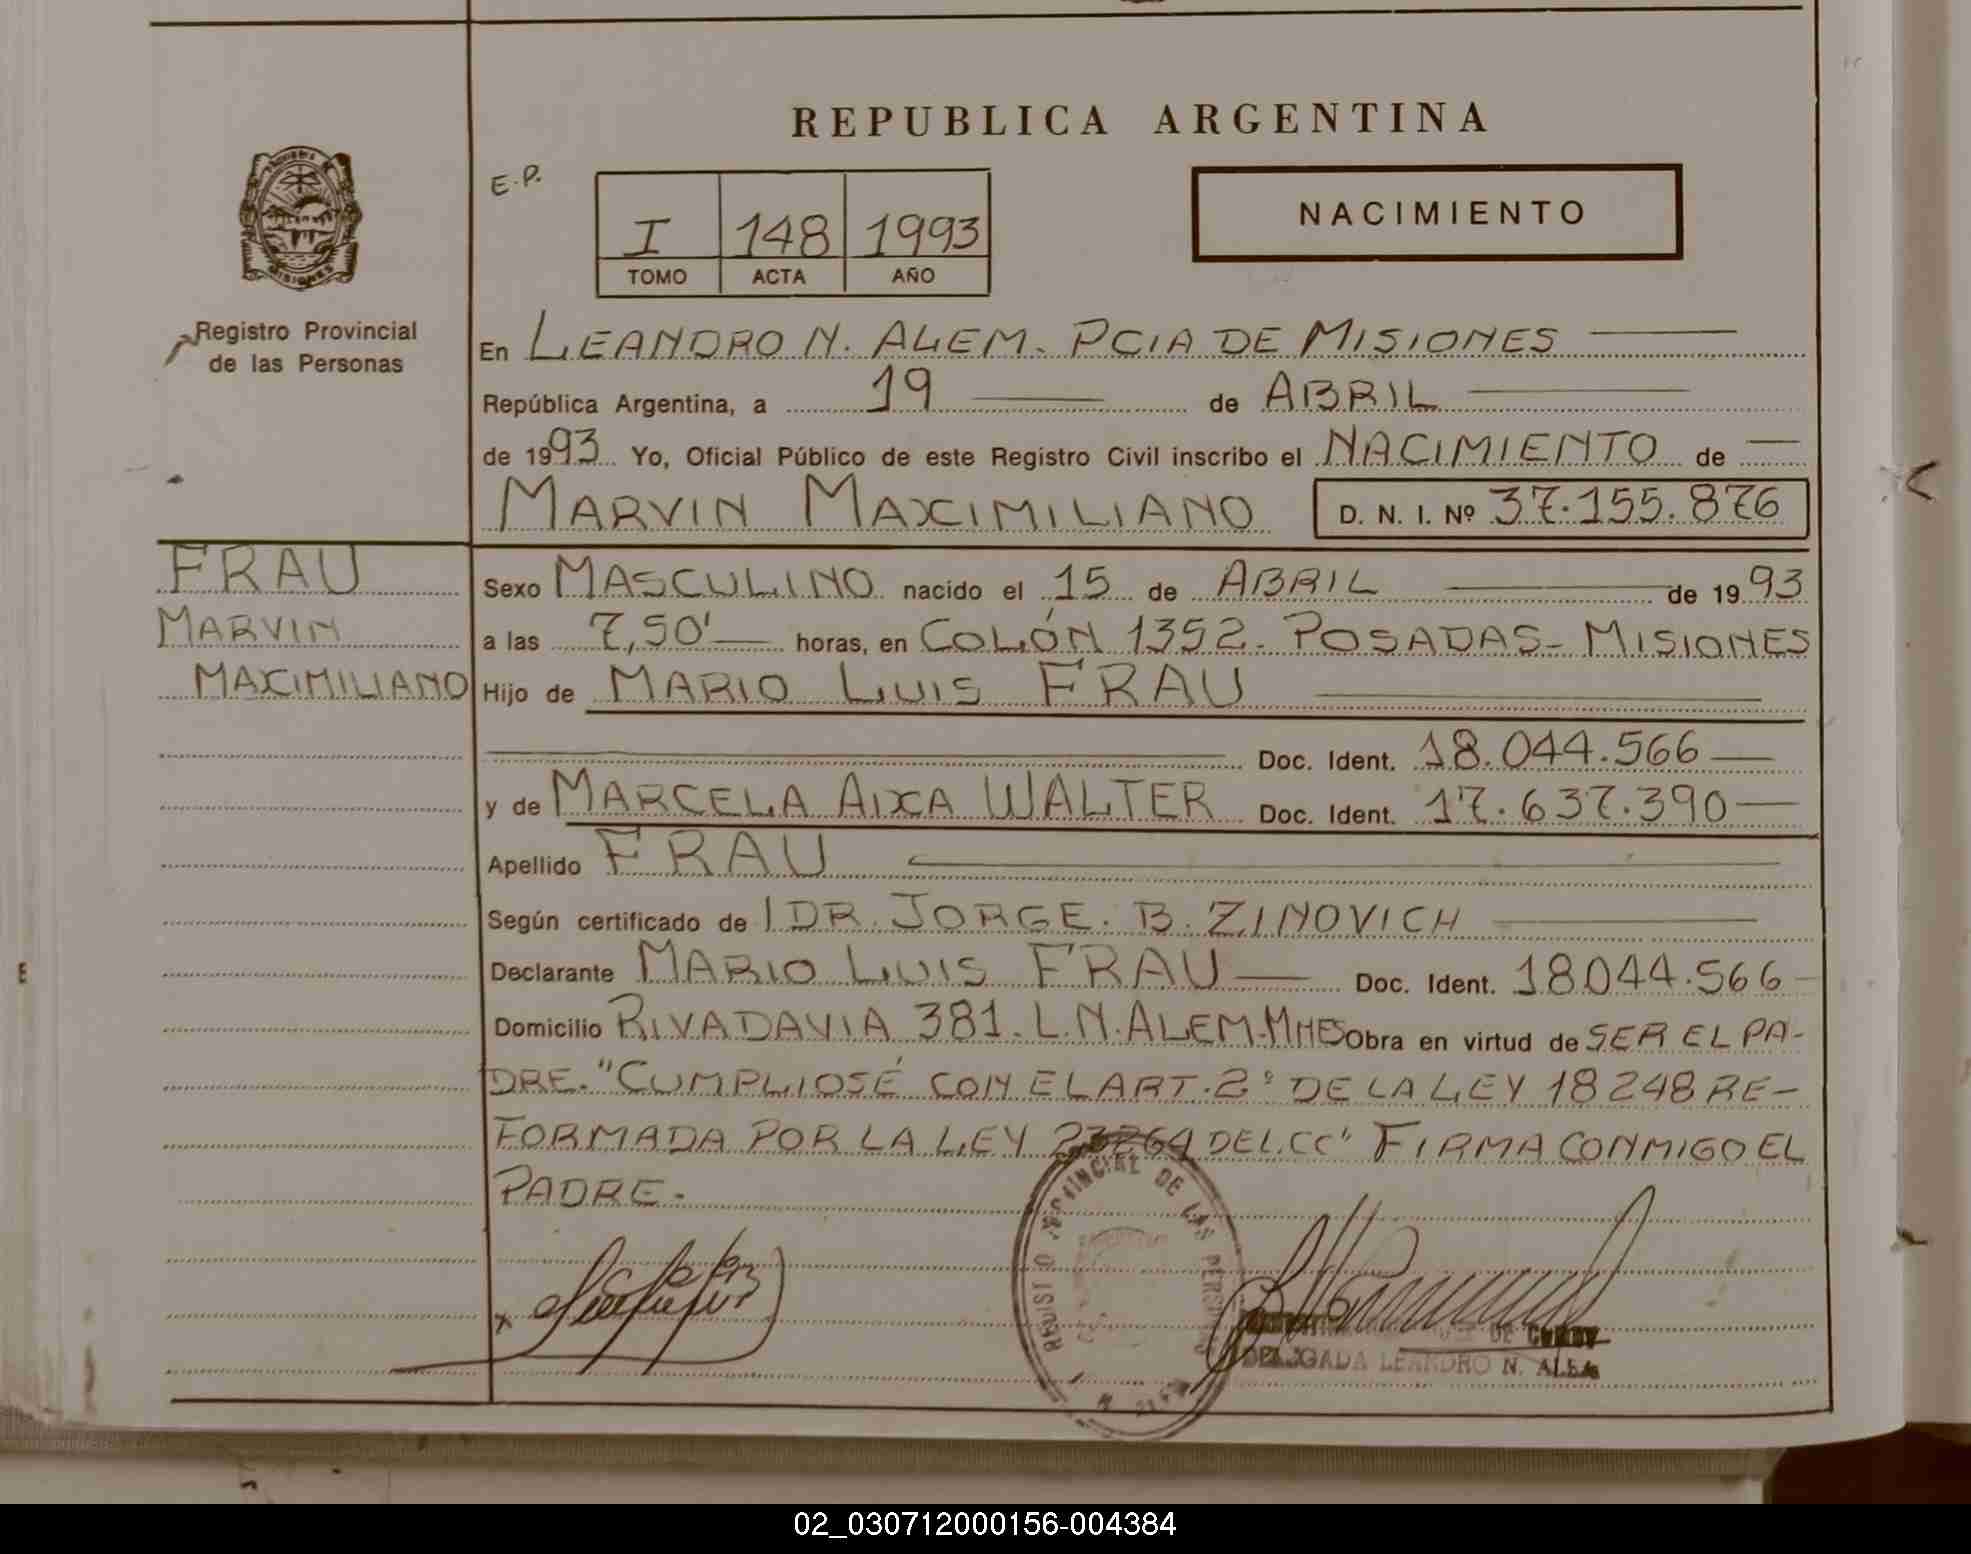 REPUBLICA ARGENTINA
E.P.
I 148 1993
TOMO ACTA AÑO
NACIMIENTO
MISIONES
Registro Provincial
de las Personas
En LEANDRO N. ALEM. PCIA DE MISIONES
República Argentina, a 19 de ABRIL
de 1993 Yo, Oficial Público de este Registro Civil inscribo el NACIMIENTO de
MARVIN MAXIMILIANO D. N. I. Nº 37.155.876
FRAU
MARVIN
MAXIMILIANO
Sexo MASCULINO nacido el 15 de ABRIL de 1993
a las 7,50' horas, en COLÓN 1352. POSADAS- MISIONES
Hijo de MARIO LUIS FRAU
Doc. Ident. 18.044.566
y de MARCELA AIXA WALTER Doc. Ident. 17.637.390
Apellido FRAU
Según certificado de l DR. JORGE. B. ZINOVICH
Declarante MARIO LUIS FRAU Doc. Ident. 18044.566
Domicilio RIVADAVIA 381. L.N. ALEM. MNES Obra en virtud de SER EL PA-
DRE. "CUMPLIOSÉ CON EL ART. 2º DE LA LEY 18248 RE-
FORMADA POR LA LEY 23264 DEL CC" FIRMA CONMIGO EL
PADRE.
REGISTRO PROVINCIAL DE LAS PERSONAS
DE
DELEGADA LEANDRO N. ALEM
02_030712000156-004384